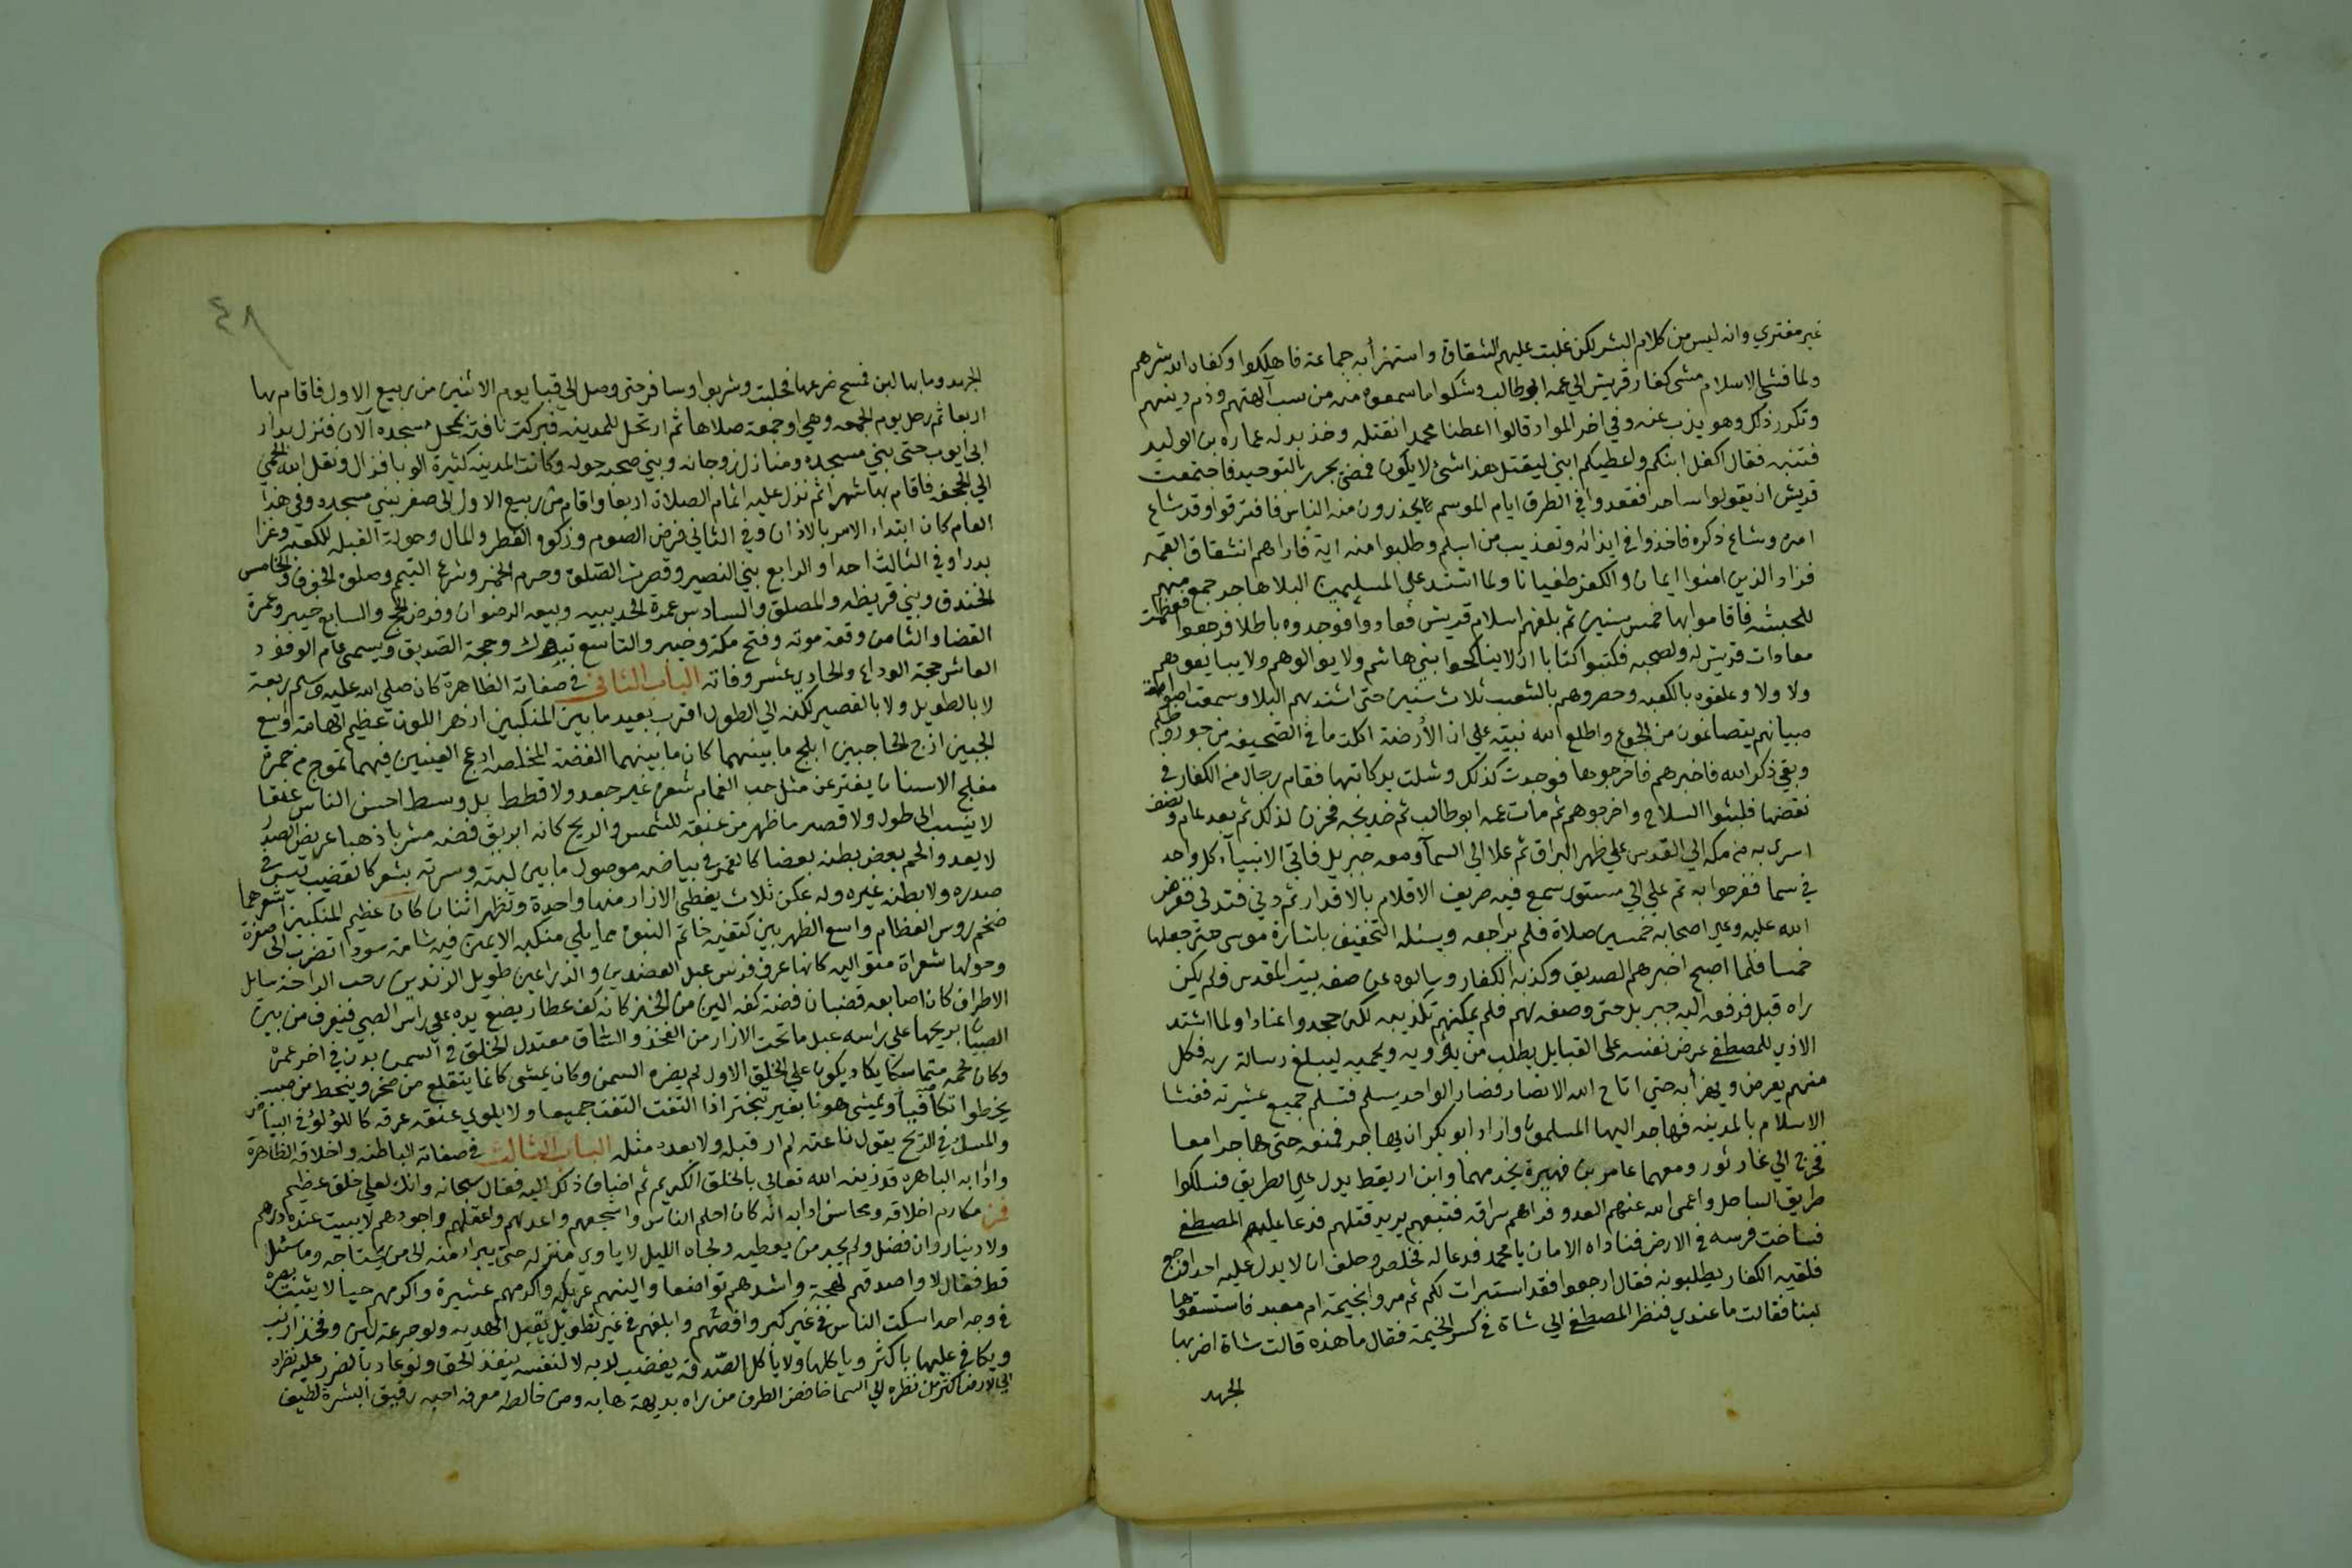 غير مفتري وانه ليس من كلام البشر لكن غلبت عليهم الشقاق واستهزأ به جماعة فاهلكوا وكفاه الله شرهم
ولما فشي الاسلام مشى كفار قريش الي عمه ابو طالب وشكوا ما سمعوه منه من سب آلهتهم وذم دينهم
وتكرر ذلك وهو يذب عنه وفي اخر المواد قالوا اعطنا محمدا نقتله وخذ بدله عماره بن الوليد
فتتبه فقال اكفل ابنكم واعطيكم ابني ليقتل هذا شئ لا يكون فمضى يحرر بالتوحيد فاجتمعت
قريش ان يقولوا ساحر فقعدوا في الطرق ايام الموسم يحذرون منه الناس فافترقوا وقد شاع
امره وشاع ذكره فاخذوا في ايذائه وتعذيب من اسلم وطلبوا منه اية فاراهم انشقاق القمر
فزاد الذين امنوا ايمانا والكفر طغيانا ولما اشتد علي المسلمين البلا هاجر جمع منهم
للحبشه فاقاموا بها خمس سنين ثم بلغهم اسلام قريش فعادوا فوجدوه باطلا فرجعوا فعظمت
معادات قريش له ولصحبه فكتبوا كتابا ان لا يناكحوا بني هاشم ولا يوالوهم ولا يبايعوهم
ولا ولا وعلقوه بالكعبه وحصروهم بالشعب ثلاث سنين حتى اشتد بهم البلا وسمعت اصوات
صبيانهم يتصاغون من الجوع واطلع الله نبيه علي ان الأرضة اكلت ما في الصحيفه من جور وظلم
وبقي ذكر الله فاخبرهم فاخرجوها فوجدت كذلك وشلت يد كاتبها فقام رجال من الكفار في
نقضها فلبثوا السلاح واخرجوهم ثم مات عمه ابو طالب ثم خديجه فحزن لذلك ثم بعد عام ونصف
اسري به من مكه الي القدس علي ظهر البراق ثم علا الي السمآ ومعه جبريل فاتي الانبيآ كل واحد
في سما ففرحوا به ثم علي الي مستوي سمع فيه صريف الاقلام بالاقدار ثم دني فتدلي ففرض
الله عليه وعلي اصحابه خمسين صلاة فلم يراجعه ويسئله التخفيف باشارة موسى حتي جعلها
خمسا فلما اصبح اخبرهم الصديق وكذبه الكفار وسالوه عن صفه بيت المقدس ولم يكن
راه قبل فرفعه اليه جبريل حتى وصفه لهم فلم يمكنهم تكذيبه لكن جحدوا عنادا ولما اشتد
الاذي للمصطفي عرض نفسه على القبايل يطلب من يؤويه ويحميه ليبلغ رسالة ربه فكل
منهم يعرض ويهزأ به حتي اتاح الله الانصار فصار الواحد يسلم فتسلم جميع عشيرته ففشا
الاسلام بالمدينه فهاجر اليها المسلمون واراد ابو بكر ان يهاجر فمنعه حتى هاجرا معا
فخرج الي غار ثور ومعهما عامر بن فهيرة يخدمهما وابن اريقط يدل علي الطريق فسلكوا
طريق الساحل واعمى الله عنهم العدو فراهم سراقه فتبعهم يريد قتلهم فدعا عليهم المصطفي
فساخت فرسه في الارض فناداه الامان يا محمد فدعا له فخلص وحلف ان لا يدل عليه احد افرجع
فلقيه الكفار يطلبونه فقال ارجعوا فقد استبرات لكم ثم مروا بخيمة ام معبد فاستسقوها
لبنا فقالت ما عندي فنظر المصطفي الي شاة في كسر الخيمة فقال ما هذه قالت شاة اضر بها
الجهد
٤٨
الجهد وما بها لبن فمسح ضرعها فحلبت وشربوا وسافر حتى وصل الي قبا يوم الاثنين من ربيع الاول فاقام بها
اربعا ثم رحل يوم الجمعه وهي اول جمعة صلاها ثم ارتحل للمدينه فبركت ناقته بمحل مسجده الآن فنزل بدار
ابي أيوب حتى بني مسجده ومنازل زوجاته وبني صحبه حوله وكانت المدينه كثيرة الوبا فزال ونقل الله الحمي
الي الجحفه فاقام بها شهرا ثم نزل عليه اتمام الصلاة اربعا واقام من ربيع الاول الى صفر يبني مسجده وفي هذا
العام كان ابتداء الامر بالاذان وفي الثاني فرض الصوم وزكوة الفطر والمال وحولة القبله للكعبه وغزا
بدرا وفي الثالث احدا والرابع بني النضير وقصرت الصلوة وحرم الخمر وشرع التيمم وصلوة الخوف والخامس
الخندق وبني قريظه والمصطلق والسادس عمرة الحديبيه وبيعه الرضوان وفرض الحج والسابع خيبر وعمرة
القضا والثامن وقعة موته وفتح مكة وحنين والتاسع تبوك وحجة الصديق ويسمى عام الوفود
العاشر حجة الوداع والحادي عشر وفاته الباب الثاني في صفاته الظاهرة كان صلي الله عليه وسلم ربعة
لا بالطويل ولا بالقصير لكنه الي الطول اقرب بعيد ما بين المنكبين ازهر اللون عظيم الهامة اوسع
الجبين ازج الحاجبين ابلج ما بينهما كان ما بينهما الفضة المخلصه ادعج العينين فيهما تموج من حمرة
مفلج الاسنان يفتر عن مثل حب الغمام شعره غير جعد ولا قطط بل وسط احسن الناس عنقا
لا ينسب الى طول ولا قصر ما ظهر من عنقه للشمس والريح كانه ابريق فضه مشربا ذهبا عريض الصدر
لا يعدو لحم بعض بطنه بعضا كالقمر في بياضه موصول ما بين لبته وسرته بشعر كالقضيب ليس في
صدره ولا بطنه غيره وله عكن ثلاث يغطي الازار منها واحدة وتظهر اثنتان كان عظيم المنكبين اشعرهما
ضخم روس العظام واسع الظهر بين كتفيه خاتم النبوة مما يلي منكبه الايمن فيه شامة سودا تضرب الى صفرة
وحولها شعرات متواليه كانها عرف فرس عبل العضدين والذراعين طويل الزندين رحب الراحة سايل
الاطراف كان اصابعه قضبان فضة كفه الين من الخز كانه كف عطار يضع يده علي راس الصبي فيعرف من بين
الصبيان بريحها علي راسه عبل ما تحت الازار من الفخذ والساق معتدل الخلق في السمن بدن في اخر عمره
وكان لحمه متماسكا يكاد يكون علي الخلق الاول لم يضره السمن وكان يمشي كانما يتقلع من صخر وينحط من صبب
يخطوا تكافيا ويمشي هونا بغير تبختر اذا التفت التفت جميعا ولا يلوي عنقه عرقه كاللؤلؤ في البياض
والمسك في الريح يقول ناعته لم ار قبله ولا بعده مثله الباب الثالث في صفاته الباطنه واخلاقه الظاهرة
وادابه الباهره قد زينه الله تعالي بالخلق الكريم ثم اضاف ذلك اليه فقال سبحانه وانك لعلي خلق عظيم
فمن مكارم اخلاقه ومحاسن ادابه انه كان احلم الناس واشجعهم واعدلهم واعقلهم واجودهم لا يبيت عنده درهم
ولا دينار وان فضل ولم يجد من يعطيه ولجاه الليل لا ياوي منزله حتى يبرا منه الى من يحتاجه وما سئل
قط فقال لا واصدقهم لهجة واشدهم تواضعا والينهم عريكه واكرمهم عشيرة واكرمهم حيا لا يثبت بصره
في وجه احد اسكت الناس في غير كبر وافصحهم وابلغهم في غير تطويل يقبل الهديه ولو جرعة لبن وفخذ ارنب
ويكافي عليها باكثر وياكلها ولا ياكل الصدقه يغضب لربه لا لنفسه ينفذ الحق ولو عاد بالضرر عليه نظره
الي الارض اكثر من نظره الي السما خافض الطرف من راه بديهة هابه ومن خالطه معرفه احبه رقيق البشرة لطيف